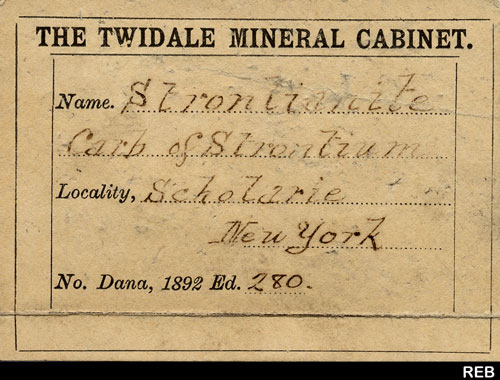 THE TWIDALE MINERAL CABINET.
Name. Strontianite
Carb of Strontium
Locality, Schoharie
New York
No. Dana, 1892 Ed. 280.
REB